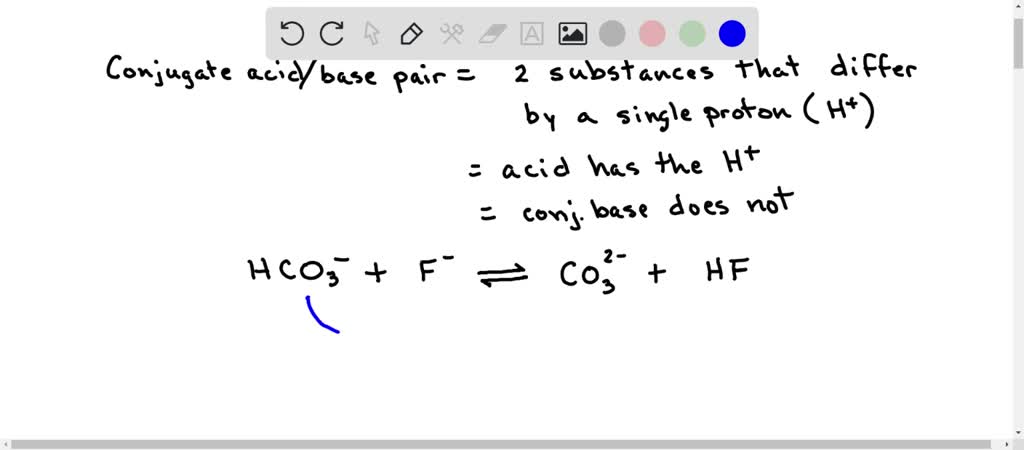 Conjugate acid/base pair = 2 substances that differ
by a single proton (H⁺)
= acid has the H⁺
= conj. base does not
HCO₃⁻ + F⁻ ⇌ CO₃²⁻ + HF